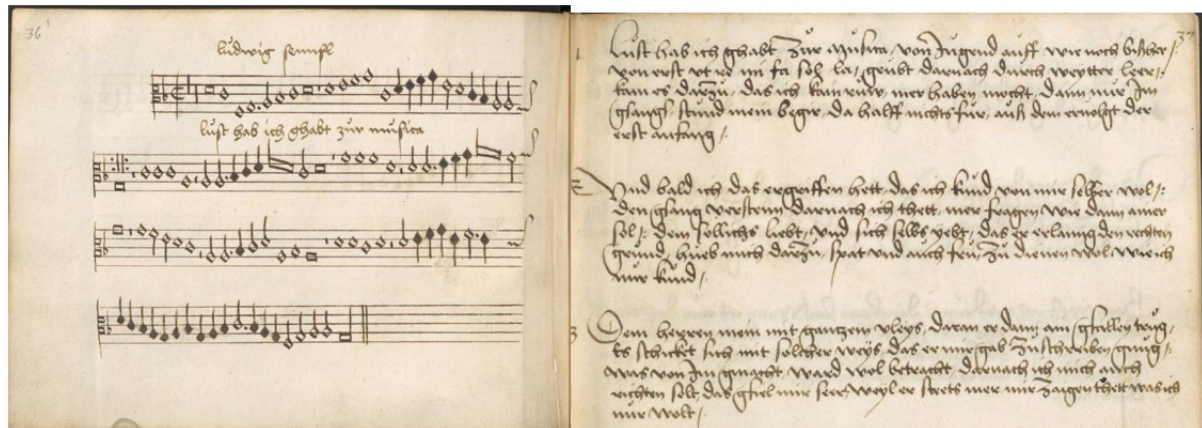 36
ludwig sennfl
lust hab ich ghabt zur musica
37
1 Lust hab ich ghabt zur Musica, von Jugend auff wie noch bißher /:
von erst vt re mi fa sol, la, geubt darnach durch weytter leer /:
kam es darzu, das ich kam rüw, mer haben mocht, dann mir im
gsang, stund mein begir, da halff nichts für, auß dem ervolgt der
erst anfang /
2 Vnd bald ich das ergriffen hett, das ich kund von mir selber wol /:
den gsang versteen, darnach ich thett, mer fragen wie dann ainer
sol /: dem sollichs liebt, vnd sich selbs yebt, das er erlanng den rechten
grund, hueb mich darzu, spat vnd auch fru, zu dienen wol wie ich
nur kund /
3 Dem herren mein mit ganzem vleys, daran er dann ain gfallen trug,
Es schicket sich mit solcher weys, das er mir gab zuschreiben gnug /:
was von im gmacht, ward wol betracht, darnach ich mich auch
richten solt, das gfiel mir seer, weyl er stets mer, mir zaigen thett was ich
nur wolt /